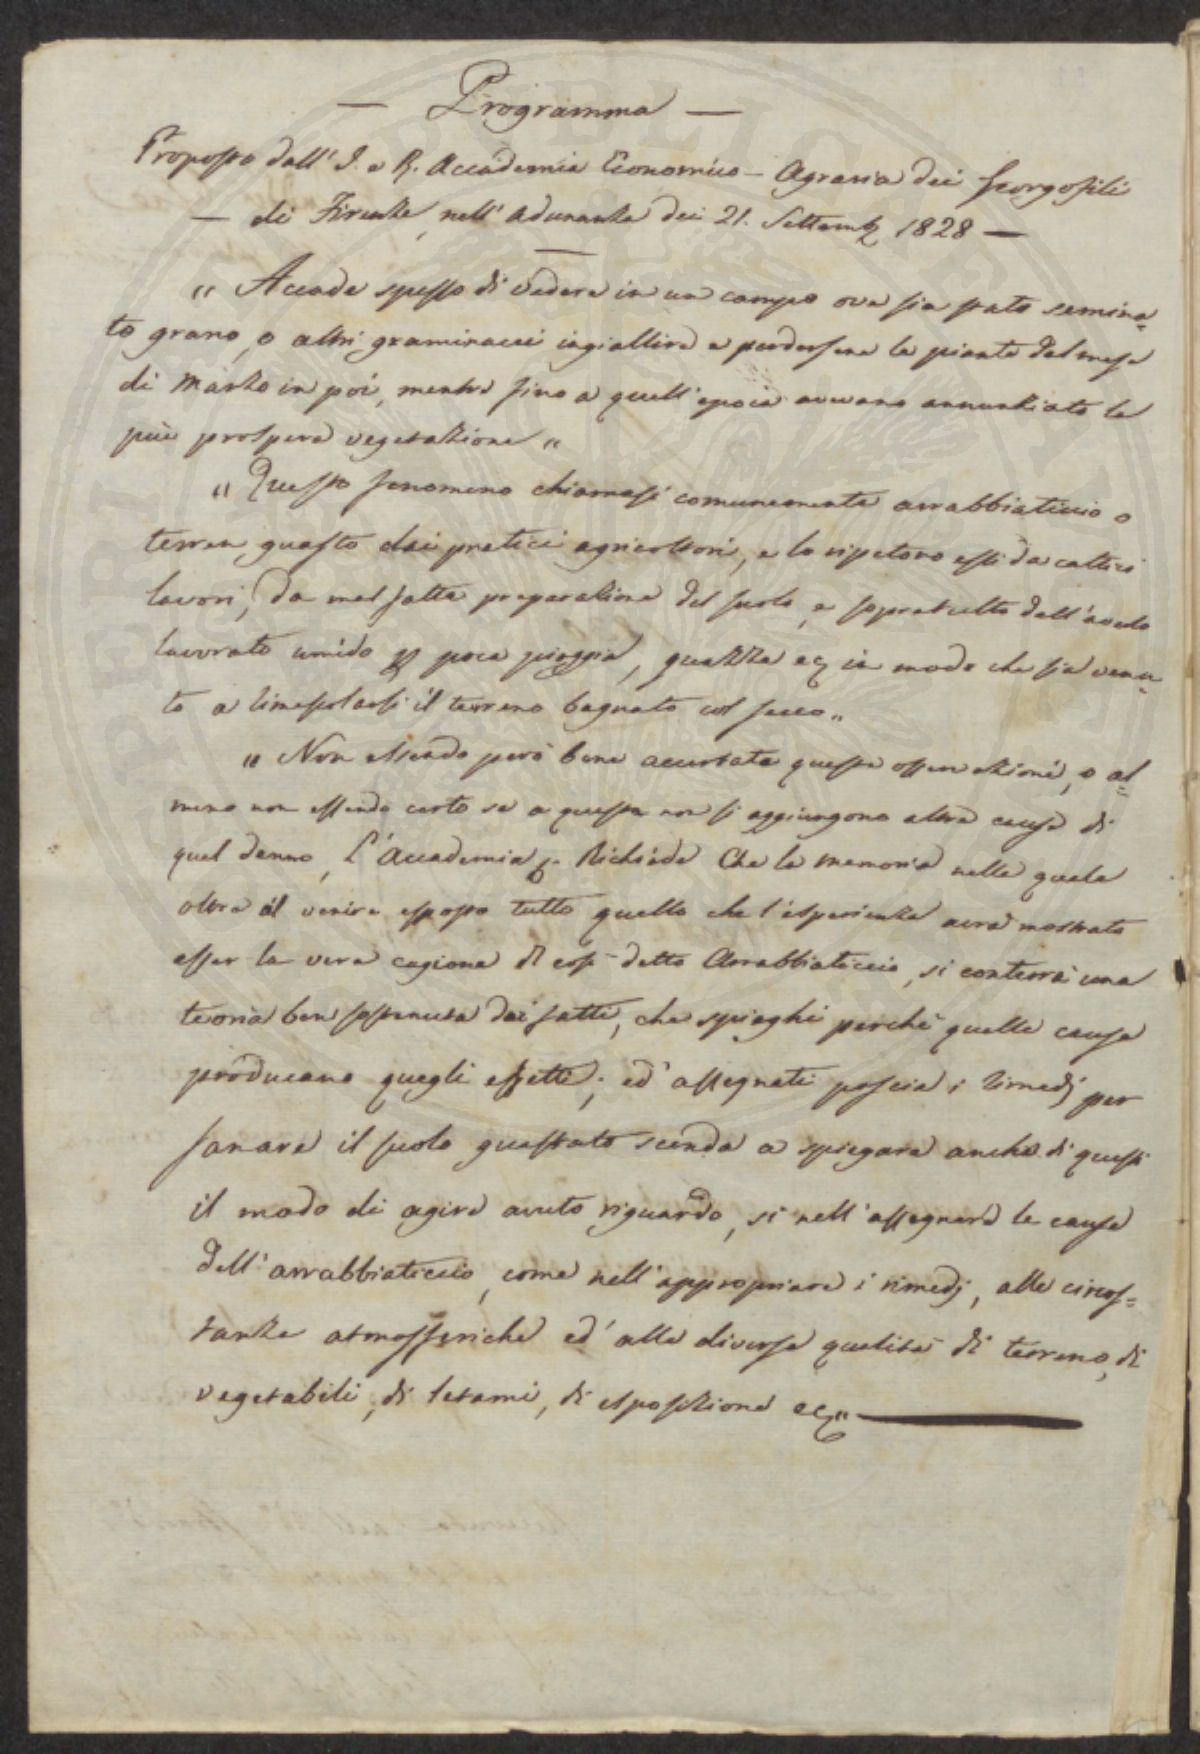 — Programma —
Proposto dall' I. e R. Accademia Economico - Agraria dei Georgofili
— di Firenze, nell' Adunanza dei 21. Settemb. 1828 —
" Accade spesso di vedere in un campo ove sia stato semina=
to grano, o altri graminacei ingiallire e perdersene le piante dal mese
di Marzo in poi, mentre fino a quell' epoca avevano annunziato la
più prospera vegetazione "
" Questo fenomeno chiamasi comunemente arrabbiaticcio o
terren guasto dai pratici agricoltori, e lo ripetono essi da cattivi
lavori, da mal fatta preparazione del suolo, e sopratutto dall' averlo
lavorato umido p. poca pioggia, guazza ec. in modo che sia venu=
to a rimescolarsi il terreno bagnato col secco "
" Non essendo però bene accertate queste osservazioni, o al=
meno non essendo certo se a queste non si aggiungono altre cause di
quel danno, L' Accademia Richiede Che la memoria nella quale
oltre al venire esposto tutto quello che l' esperienza avrà mostrato
esser la vera cagione di così detto Arrabbiaticcio, si conterrà una
teoria ben sostenuta dai fatti, che spieghi perchè quelle cause
producano quegli effetti; ed' assegnati poscia i rimedj per
sanare il suolo guastato scenda a spiegare anche di questi
il modo di agire avuto riguardo, sì nell' assegnare le cause
dell' arrabbiaticcio, come nell' appropriare i rimedj, alle circos=
tanze atmosferiche ed' alle diverse qualità di terreno, di
vegetabili, di letami, di esposizione ec. "